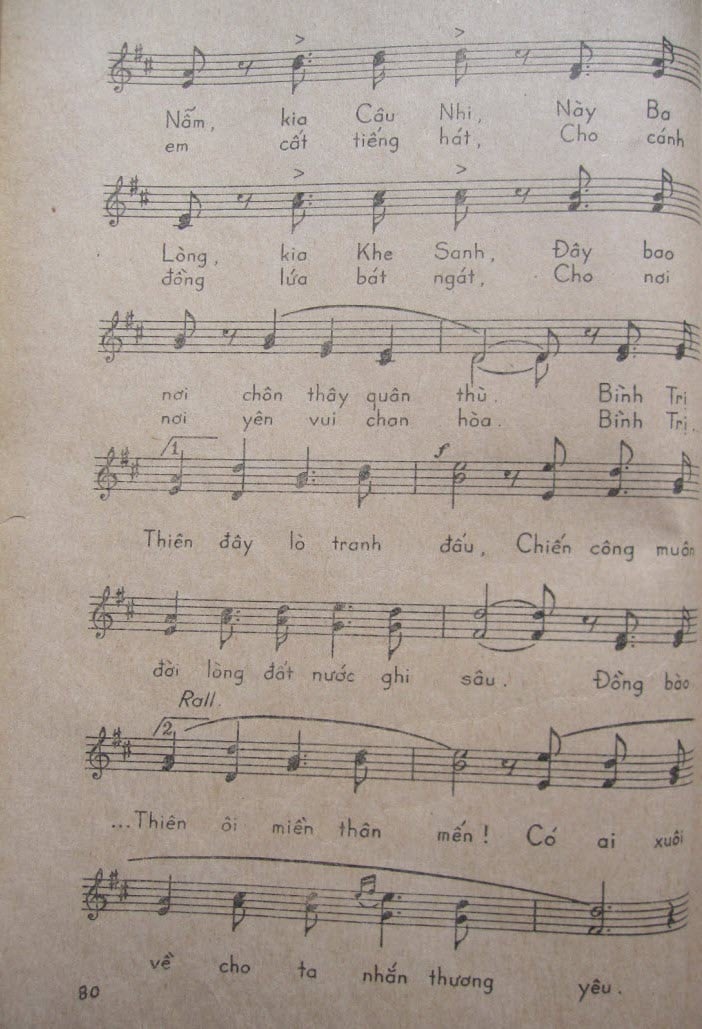 Nẫm, kia Câu Nhi, Này Ba
em cất tiếng hát, Cho cánh
Lòng, kia Khe Sanh, Đây bao
đồng lúa bát ngát, Cho nơi
nơi chôn thây quân thù. Bình Trị
nơi yên vui chan hòa. Bình Trị.
1
f
Thiên đây lò tranh đấu, Chiến công muôn
đời lòng đất nước ghi sâu. Đồng bào
Rall.
2
...Thiên ôi miền thân mến! Có ai xuôi
về cho ta nhắn thương yêu.
80